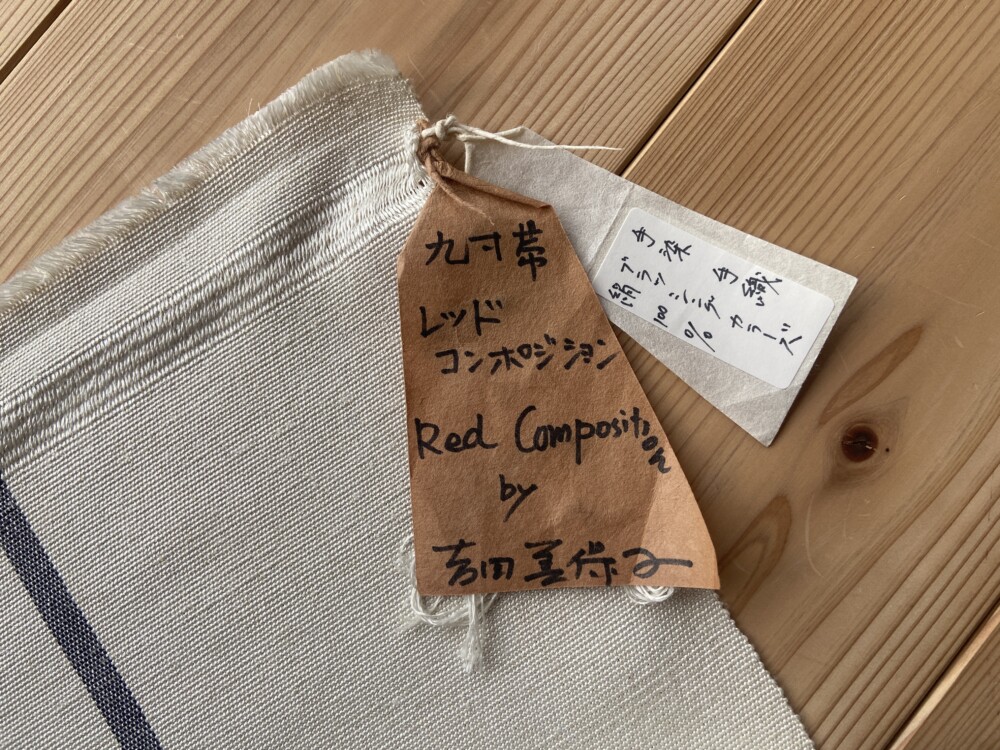 九寸帯
レッド
コンポジション
Red Composition
by
吉田美保子
手染 手織
ブラッシング カラーズ
絹 100%